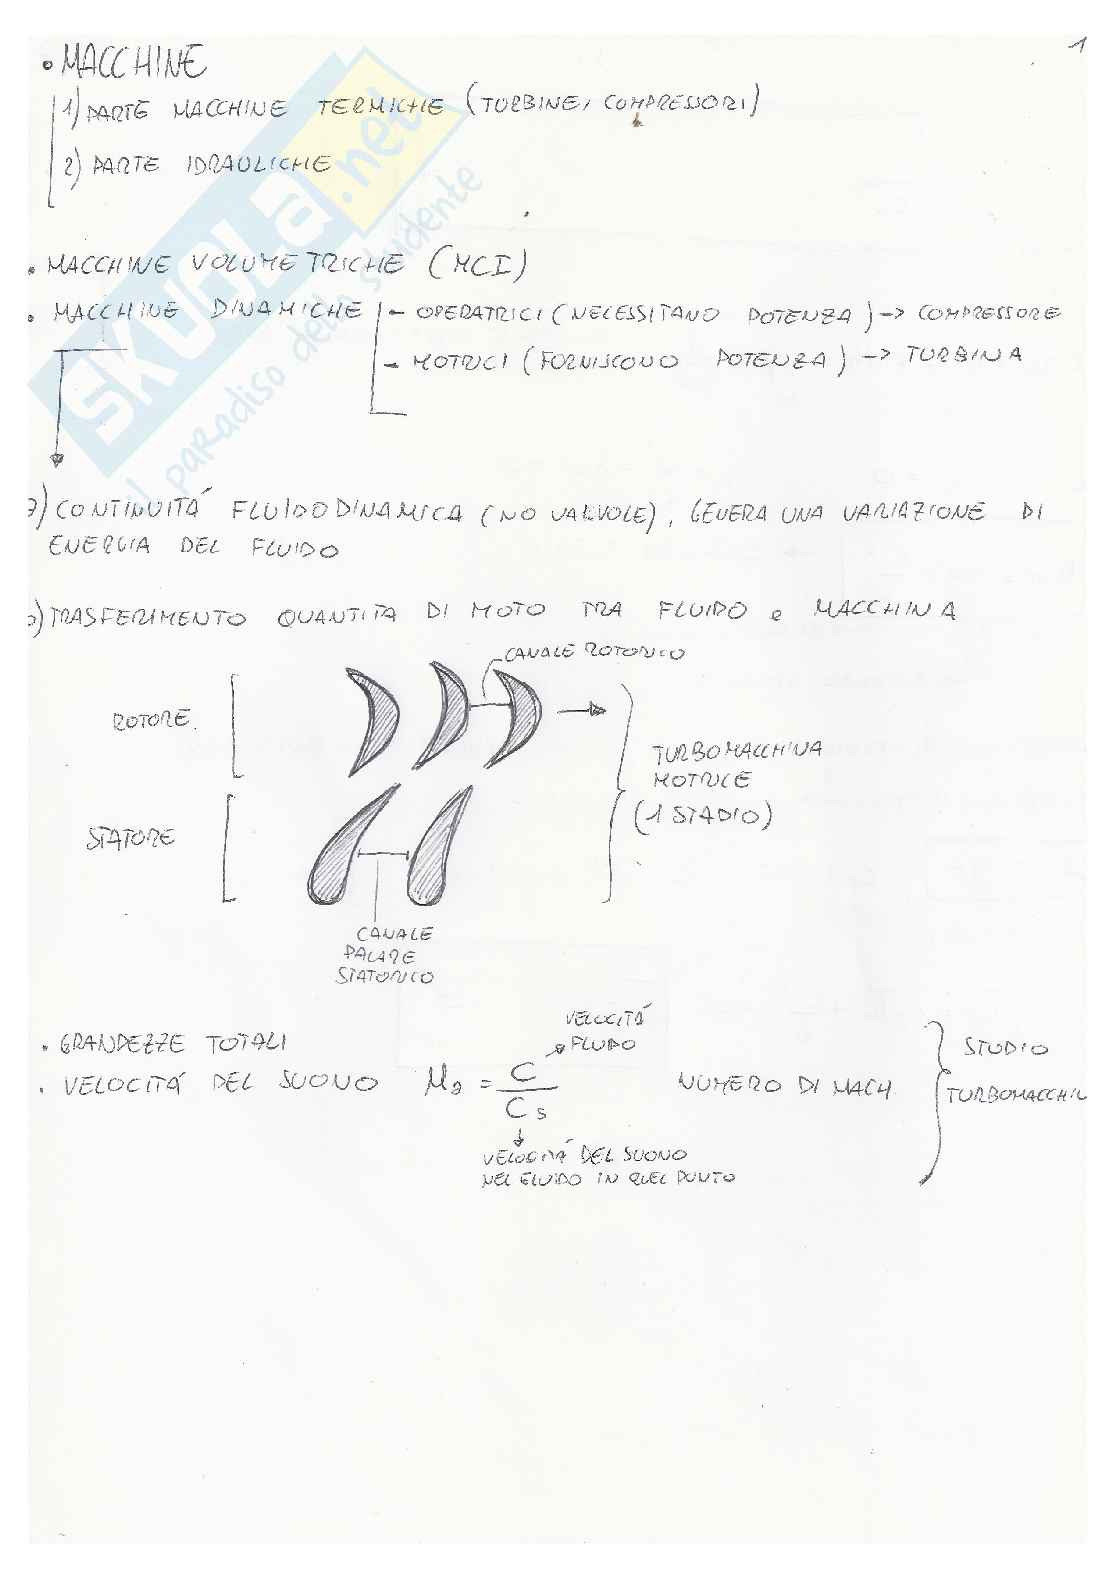 1
• MACCHINE
1) PARTE MACCHINE TERMICHE (TURBINE, COMPRESSORI)
2) PARTE IDRAULICHE
SKUOLA.net
il paradiso dello studente
• MACCHINE VOLUMETRICHE (MCI)
• MACCHINE DINAMICHE - OPERATRICI (NECESSITANO POTENZA) -> COMPRESSORE
- MOTRICI (FORNISCONO POTENZA) -> TURBINA
) CONTINUITÁ FLUIDODINAMICA (NO VALVOLE), GENERA UNA VARIAZIONE DI
ENERGIA DEL FLUIDO
) TRASFERIMENTO QUANTITA DI MOTO TRA FLUIDO e MACCHINA
CANALE ROTORICO
ROTORE.
TURBOMACCHINA
MOTRICE
(1 STADIO)
STATORE
CANALE
PALARE
STATORICO
VELOCITÁ
FLUIDO
• GRANDEZZE TOTALI
• VELOCITÁ DEL SUONO Ma = C / Cs NUMERO DI MACH
VELOCITÁ DEL SUONO
NEL FLUIDO IN QUEL PUNTO
STUDIO
TURBOMACCHI